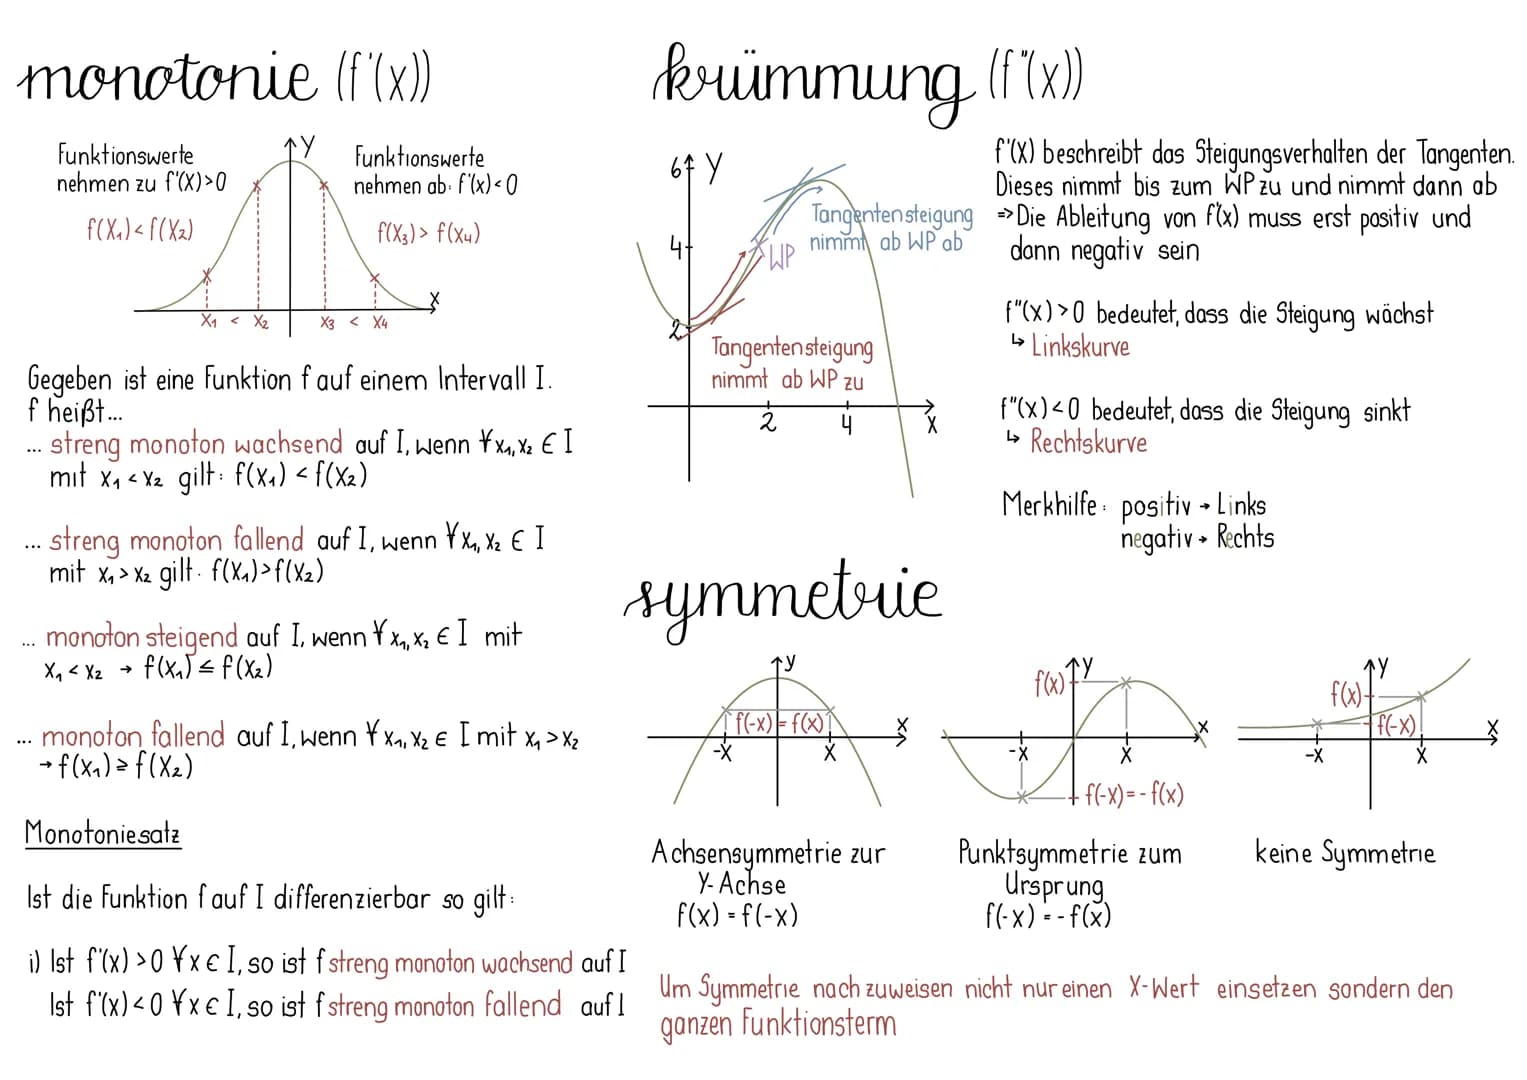 monotonie (f'(x))
Funktionswerte
nehmen zu f'(x)>0
f(x₁)<f(x₂)
y
Funktionswerte
nehmen ab: f'(x)<0
f(x₃)>f(x₄)
x
x₁ < x₂
x₃ < x₄
Gegeben ist eine Funktion f auf einem Intervall I.
f heißt...
... streng monoton wachsend auf I, wenn ∀x₁,x₂ ∈ I
mit x₁ < x₂ gilt: f(x₁) < f(x₂)
... streng monoton fallend auf I, wenn ∀x₁,x₂ ∈ I
mit x₁ > x₂ gilt: f(x₁)>f(x₂)
... monoton steigend auf I, wenn ∀x₁,x₂ ∈ I mit
x₁ < x₂ → f(x₁) ≤ f(x₂)
... monoton fallend auf I, wenn ∀x₁,x₂ ∈ I mit x₁ > x₂
→ f(x₁) ≥ f(x₂)
Monotoniesatz
Ist die Funktion f auf I differenzierbar so gilt:
i) Ist f'(x) >0 ∀x ∈ I, so ist f streng monoton wachsend auf I
Ist f'(x)<0 ∀x ∈ I, so ist f streng monoton fallend auf I
krümmung (f"(x))
6
y
4
2
WP
Tangentensteigung
nimmt ab WP ab
Tangentensteigung
nimmt ab WP zu
2
4
x
f'(x) beschreibt das Steigungsverhalten der Tangenten.
Dieses nimmt bis zum WP zu und nimmt dann ab
=> Die Ableitung von f'(x) muss erst positiv und
dann negativ sein
f"(x)>0 bedeutet, dass die Steigung wächst
↳ Linkskurve
f"(x)<0 bedeutet, dass die Steigung sinkt
↳ Rechtskurve
Merkhilfe: positiv → Links
negativ → Rechts
symmetrie
y
f(-x) = f(x)
x
-x
x
Achsensymmetrie zur
Y-Achse
f(x) = f(-x)
y
f(x)
x
-x
x
f(-x) = - f(x)
Punktsymmetrie zum
Ursprung
f(-x) = - f(x)
y
f(x)
f(-x)
x
-x
x
keine Symmetrie
Um Symmetrie nachzuweisen nicht nur einen X-Wert einsetzen sondern den
ganzen Funktionsterm